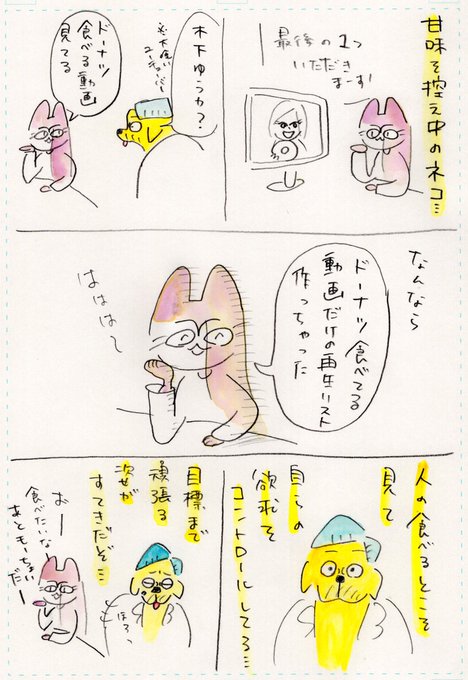 甘味を控え中のネコ…
最後の1つ
いただき
まーす!
木下ゆうか?
※大食い
ユーチューバー
ドーナツ
食べる動画
見てる
なんなら
ドーナツ食べてる
動画だけの再生リスト
作っちゃった
ははは〜
人の食べるところを
見て
自らの
欲求を
コントロールしてる…
目標まで
頑張る
次せが
すてきだぞ…
ほろ、
おー
食べたいな
あともーちょい
だー